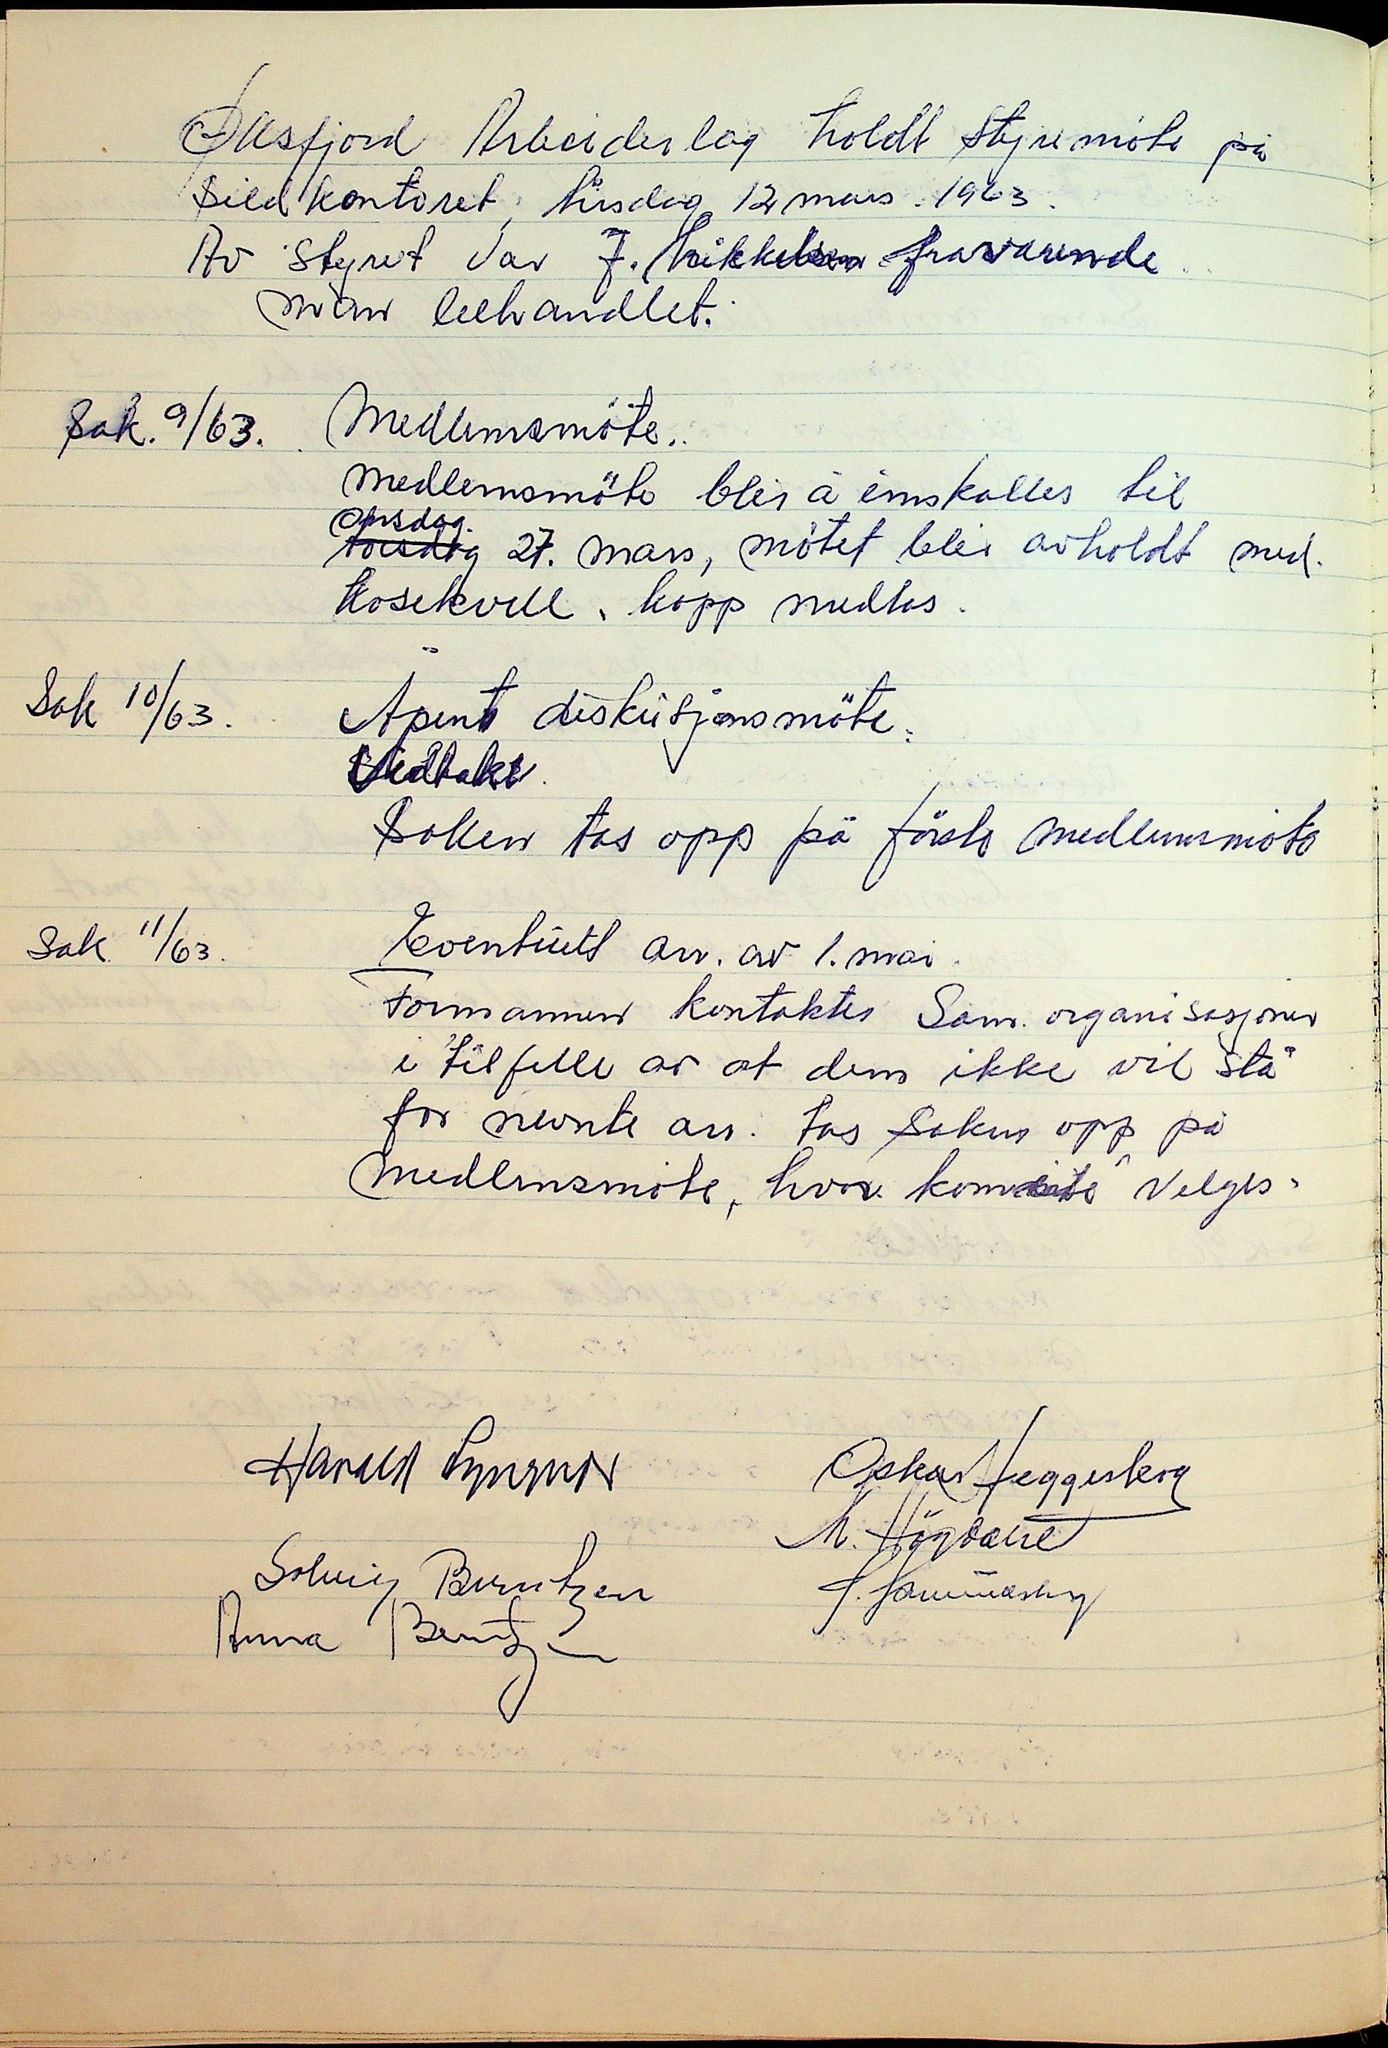 Øksfjord Arbeiderlag holdt styremöte på
Sildkontoret, tirsdag 12 mars. 1963.
Av styret var J. Mikkelsen fraværende
man behandlet.
Sak. 9/63. Medlemsmöte.
Medlemsmöte blir å innkalles til
Onsdag.
torsdag 27. mars, mötet blir avholdt med.
kosekvell, kopp medtas.
Sak 10/63. Åpent diskusjonsmöte.
Vedtak.
Saken tas opp på förste medlemsmöte
Sak 11/63. Eventuelt arr. av 1. mai.
Formannen kontakter Sam. organisasjonen
i tilfelle av at dem ikke vil stå
for nevnte arr. tas saken opp på
medlemsmöte, hvor komité velges.
Harald Lyngnes Oskar Heggesberg
M. Högdahl
Solveig Berntzen
Anna Berntzen